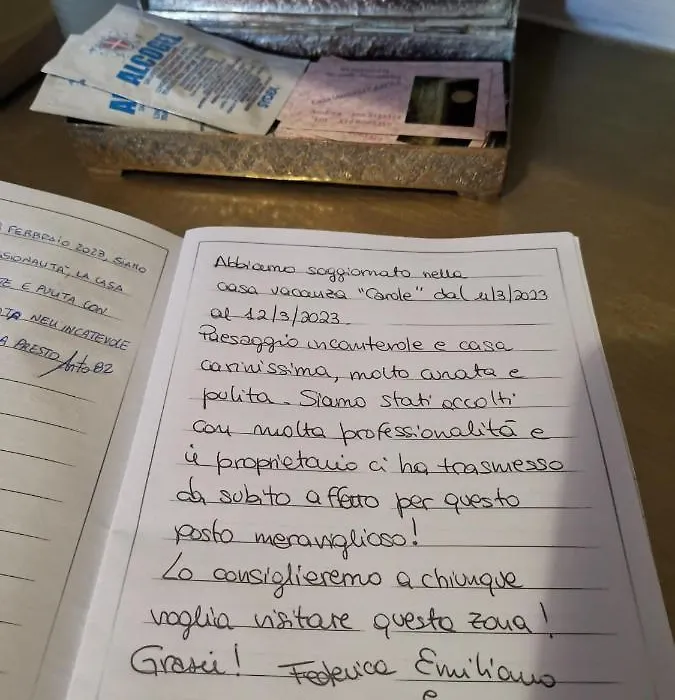 ALCOGEL
FEBBRAIO 2023, SIAMO
LA CASA
E PULITA CON
NELL'INCATEVOLE
A PRESTO
Abbiamo soggiornato nella
casa vacanza "Carole" dal 11/3/2023
al 12/3/2023.
Paesaggio incantevole e casa
carinissima, molto curata e
pulita. Siamo stati accolti
con molta professionalità e
il proprietario ci ha trasmesso
da subito affetto per questo
posto meraviglioso!
Lo consiglieremo a chiunque
voglia visitare questa zona!
Grazie! Federica Emiliano
e